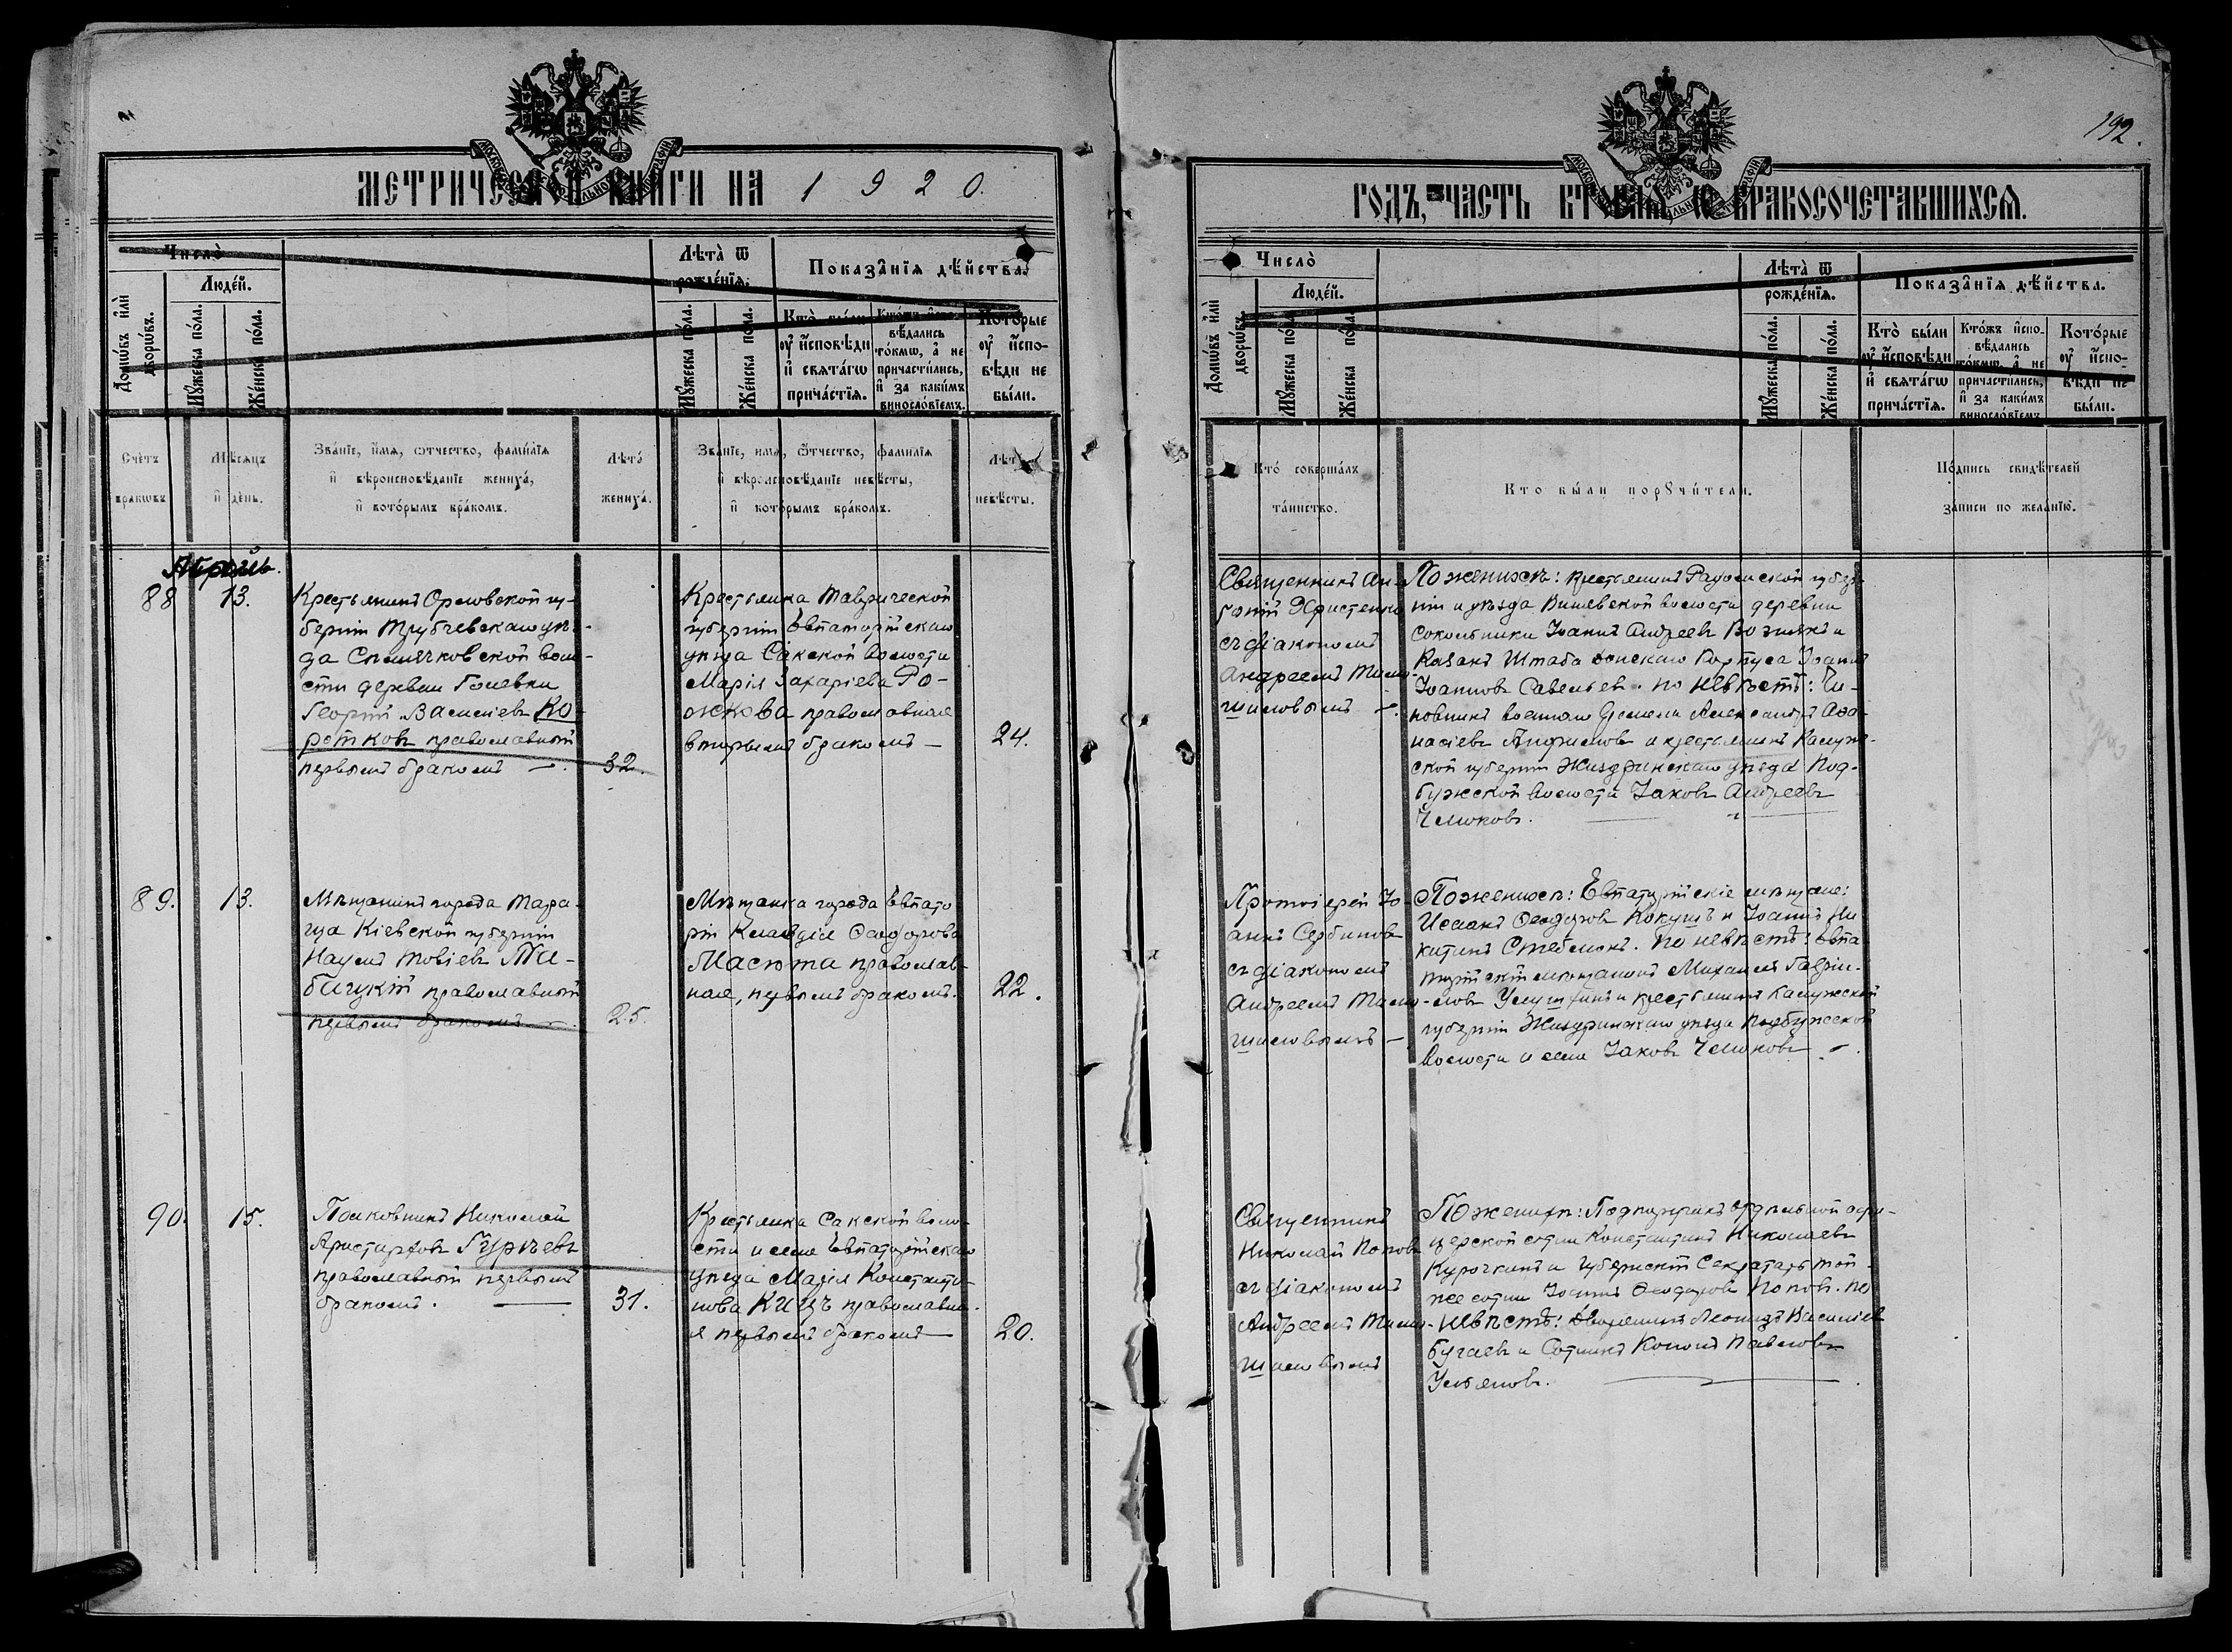 192.
МЕТРИЧЕСКОЙ КНИГИ НА 1920.
ГОДЪ, ЧАСТЬ ВТОРАЯ Ѡ БРАКОСОЧЕТАВШИХСЯ.
Число̀
Домѡ́въ и҆лѝ дворѡ́въ.
Люде́й.
Мꙋ́жеска по́ла.
Же́нска по́ла.
Лѣта̀ ѿ рожде́нїѧ.
Мꙋ́жеска по́ла.
Же́нска по́ла.
Показа̑нїѧ дѣ́йства.
Кто̀ бы́ли
оу҆ и҆́сповѣди
и҆ свѧта́гѡ
прича́стїѧ.
Кто́жъ и҆спо-
вѣдались
то́кмѡ, а҆ не
причасти́лись,
и҆ за каки́мъ
винослові́емъ.
Кото́рые
оу҆ и҆спо-
вѣди не
бы́ли.
Число̀
Домѡ́въ и҆лѝ дворѡ́въ.
Люде́й.
Мꙋ́жеска по́ла.
Же́нска по́ла.
Лѣта̀ ѿ рожде́нїѧ.
Мꙋ́жеска по́ла.
Же́нска по́ла.
Показа̑нїѧ дѣ́йства.
Кто̀ бы́ли
оу҆ и҆́сповѣди
и҆ свѧта́гѡ
прича́стїѧ.
Кто́жъ и҆спо-
вѣдались
то́кмѡ, а҆ не
причасти́лись,
и҆ за каки́мъ
винослові́емъ.
Кото́рые
оу҆ и҆спо-
вѣди не
бы́ли.
Счетъ браковъ
Мѣсяцъ и день.
Званіе, имя, отчество, фамилія
и вѣроисповѣданіе жениха,
и которымъ бракомъ.
Лѣта жениха.
Званіе, имя, отчество, фамилія
и вѣроисповѣданіе невѣсты,
и которымъ бракомъ.
Лѣта невѣсты.
Кто совершалъ таинство.
Кто были поручители.
Подпись свидѣтелей
записи по желанію.
Апрѣль.
88 13.
Крестьянинъ Орловской гу-
берніи Трубчевскаго уѣз-
да Воло-
сти деревни
Георгій Василіевъ Ко-
ротковъ православный
первымъ бракомъ —.
32.
Крестьянка Таврической
губерніи Евпаторійскаго
уѣзда Сакской волости
Марія Захаріева Ро-
жкова православная
вторымъ бракомъ —
24.
Священникъ Ан-
тоній Христенко
съ діакономъ
Андреемъ Тимо-
шиловымъ —.
По женихѣ: крестьянинъ губер-
ніи и уѣзда волости деревни
Сокольники Іоаннъ Андреевъ и
Казакъ Штаба Донскаго Корпуса Іоаннъ
Іоанновъ Савельевъ. по невѣстѣ: Чи-
новникъ военнаго времени Александръ Аѳа-
насіевъ Анфиловъ и крестьянинъ Калуж-
ской губерніи Жиздринскаго уѣзда Под-
бужской волости Іаковъ Андреевъ
Челюковъ.
89. 13.
Мѣщанинъ города Тара-
ща Кіевской губерніи
Наумъ Товіевъ

православный
первымъ бракомъ —.
25.
Мѣщанка города Евпато
ріи Клавдія Ѳеодорова
Масюта православ-
ная, первымъ бракомъ.
22.
Протоіерей Іо-
аннъ Сербиновъ
съ діакономъ
Андреемъ Тимо-
шиловымъ —
По женихѣ: Евпаторійскіе мѣщане:
Исаакъ Ѳеодоровъ Кокушъ и Іоаннъ Ни-
китинъ. По невѣстѣ: Евпа-
торійскій мѣщанинъ Михаилъ Гаврiи-
ловъ и крестьянинъ Калужской
губерніи Жиздринскаго уѣзда Подбужской
волости и села Іаковъ Челюковъ —.
90. 15.
Полковникъ Николай
Аристарховъ Гурѣевъ
православный первымъ
бракомъ. —
31.
Крестьянка Сакской воло-
сти и села Евпаторійскаго
уѣзда Марія Константи-
нова Кицъ православна-
я первымъ бракомъ —
20.
Священникъ
Николай Поповъ
съ діакономъ
Андреемъ Тимо-
шиловымъ
По женихѣ: отдѣльной офи-
церской сотни Константинъ Николаевъ
Курочкинъ и губернскій Секретарь той-
же сотни Іоаннъ Ѳеодоровъ Поповъ. по
невѣстѣ: Дворянинъ Леонидъ Василіев
Бугаевъ и Сотникъ Кононъ Павловъ
Ульяновъ.